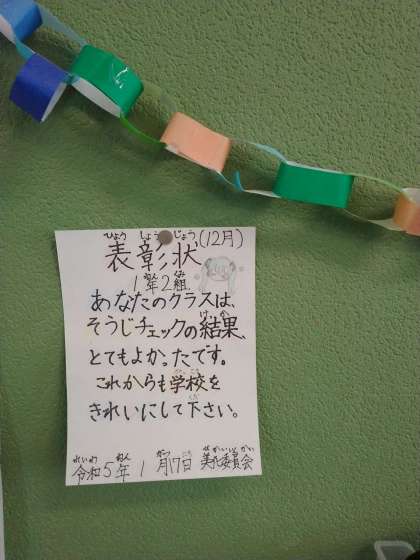 表彰状(12月)
1年2組
あなたのクラスは、
そうじチェックの結果、
とてもよかったです。
これからも学校を
きれいにして下さい。
令和5年1月17日 美化委員会